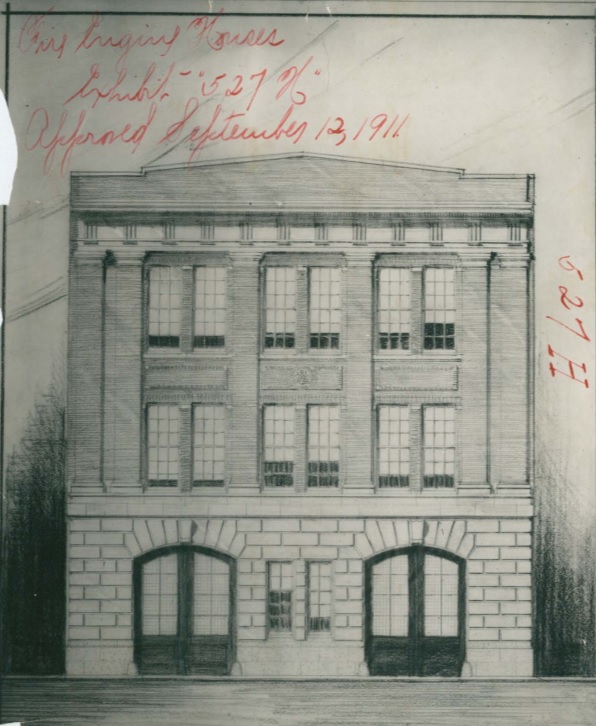 Fire Engine Houses
Exhibit - "527 H"
Approved September 12, 1911
527 H